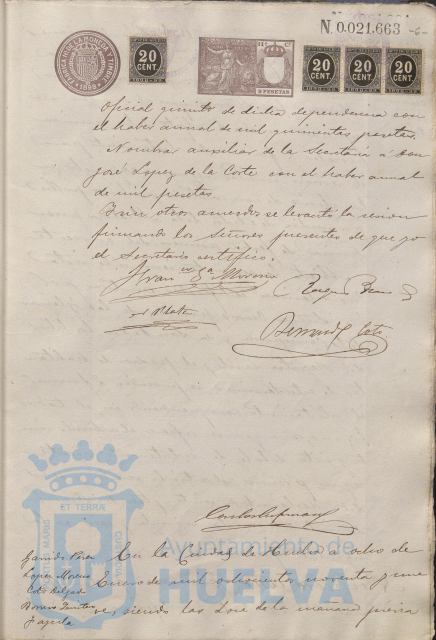 N. 0.021.663 -6-
FABRICA DE LA MONEDA Y TIMBRE
1898
20 CENT.
1898-99
11ª Cª
2 PESETAS
20 CENT.
20 CENT.
20 CENT.
1898-99
1898-99
1898-99
Oficial quinto de dicha dependencia con
el haber anual de mil quinientas pesetas.
Nombrar auxiliar de la Secretaria á Don
José Lopez de la Corte con el haber anual
de mil pesetas
Y sin otros acuerdos se levantó la sesion
firmando los Señores presentes de que yo
el Secretario certifico.
Moreno
Garrido Perez
Lopez Moreno
Coto Delgado
En la Ciudad de Huelva a ocho de
Enero de mil ochocientos noventa y nue
ve, siendo las doce de la mañana previa
ET TERRAE
Ayuntamiento de
HUELVA